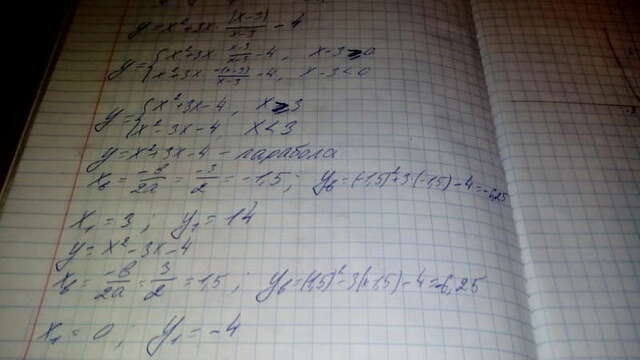 y=x²+3x·(x-3)/x-3 -4
y={x²+3x·x-3/x-3 -4, x-3>0
x²+3x·-(x-3)/x-3 -4, x-3<0
y={x²+3x-4, x>3
x²-3x-4 x<3
y=x²+3x-4 - парабола
xв=-в/2a=-3/2=-1,5; yв=(-1,5)²+3·(-1,5)-4=-6,25
x₁=3; y₁=14
y=x²-3x-4
xв=-в/2a=3/2=1,5; yв=(1,5)²-3·1,5)-4=-6,25
x₁=0; y₁=-4